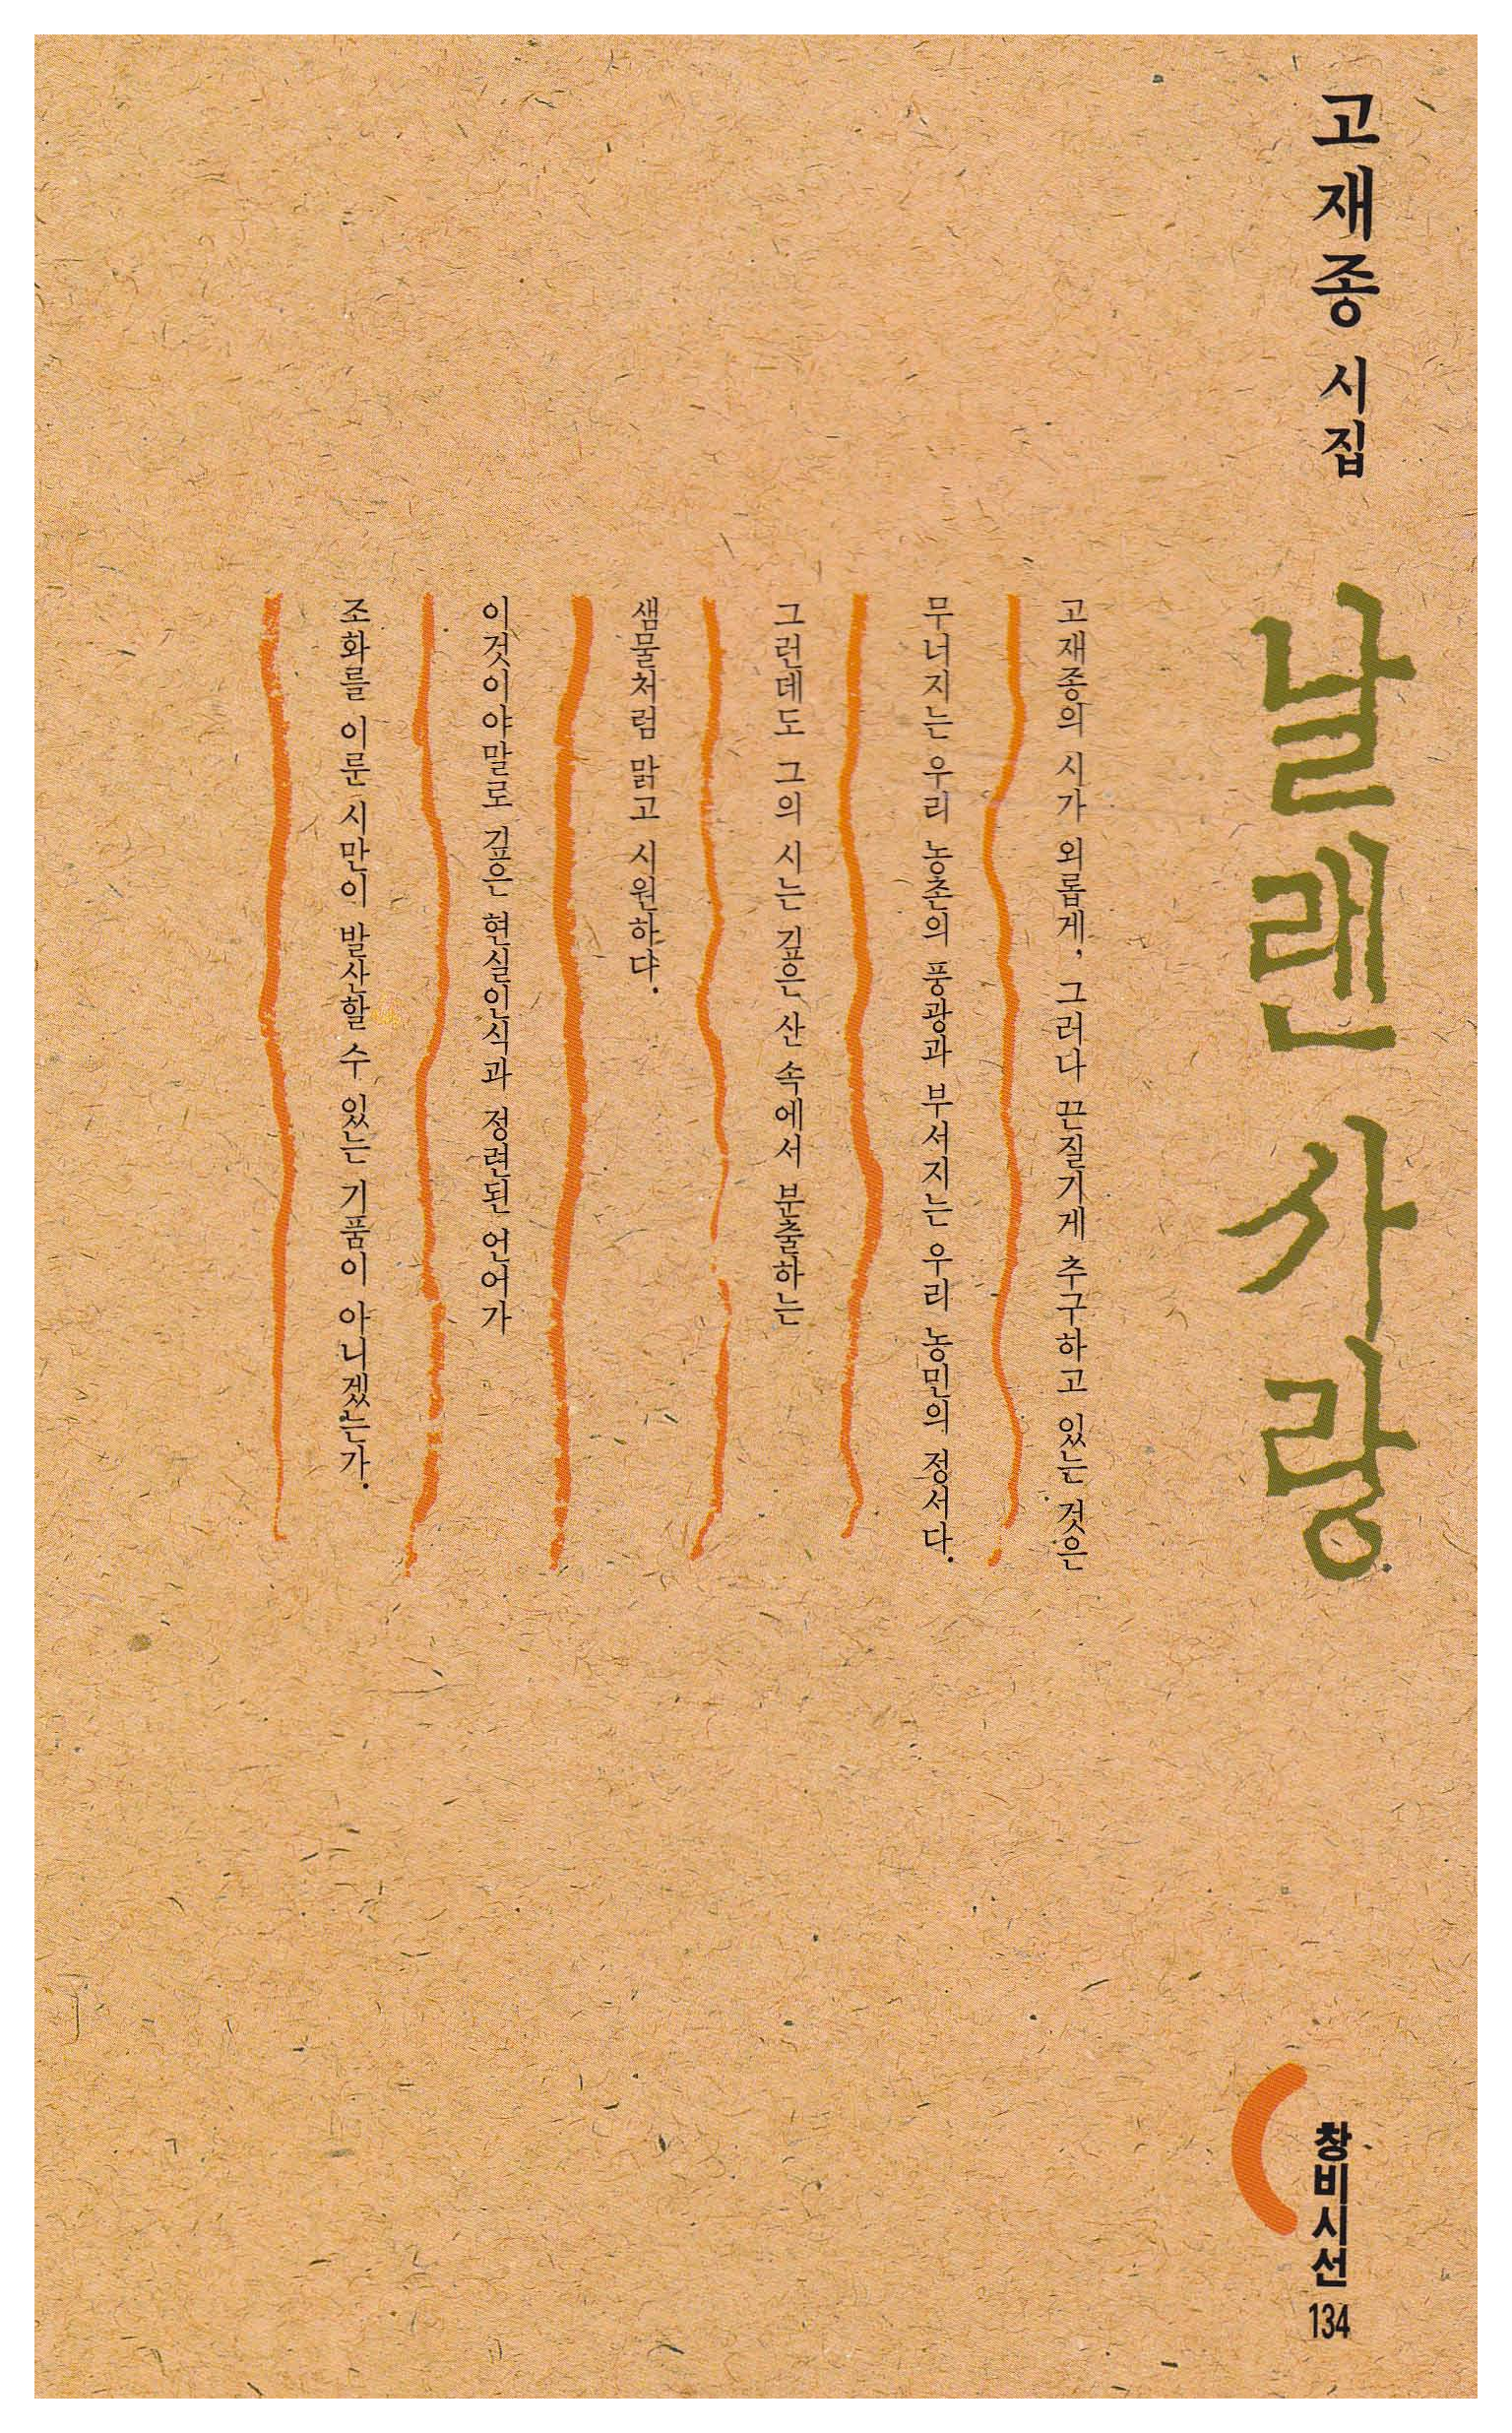 고재종 시집
날랜 사랑
고재종의 시가 외롭게, 그러다 끈질기게 추구하고 있는 것은
무너지는 우리 농촌의 풍광과 부서지는 우리 농민의 정서다.
그런데도 그의 시는 깊은 산 속에서 분출하는
샘물처럼 맑고 시원하다.
이것이야말로 깊은 현실인식과 정련된 언어가
조화를 이룬 시만이 발산할 수 있는 기품이 아니겠는가.
창비시선
134